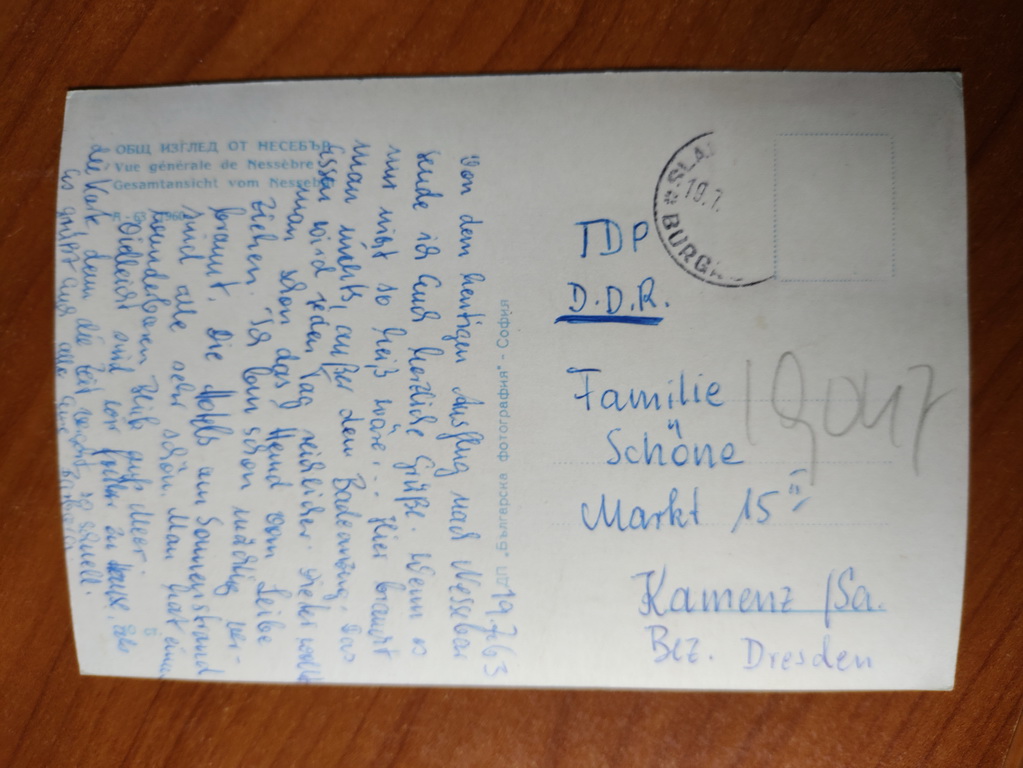 ОБЩ ИЗГЛЕД ОТ НЕСЕБЪР
Vue générale de Nessèbre
Gesamtansicht vom Nessebar
A - 63 1960
19.7.63
Von dem heutigen Ausflug nach Nesebar
sende ich Euch herzliche Grüße. Wenn es
nur nicht so heiß wäre... Hier braucht
man nichts außer dem Badeanzug. Das
Essen wird jeden Tag reichlicher.
man schon das Hemd vom Leibe
ziehen. Ich bin schon mächtig ver-
braunt. Die Hotels am Sonnenstrand
sind alle sehr schön. Man hat einen
wunderbaren Blick aufs Meer.
Vielleicht sind wir früher zu Hause, als
die Karte, denn die Zeit vergeht so schnell.
Es grüßt Euch alle Eure
ДП „Българска фотография" - София
BURGAS
19.7.
TDP
D.D.R.
Familie
Schöne
Markt 15
Kamenz /Sa.
Bez. Dresden